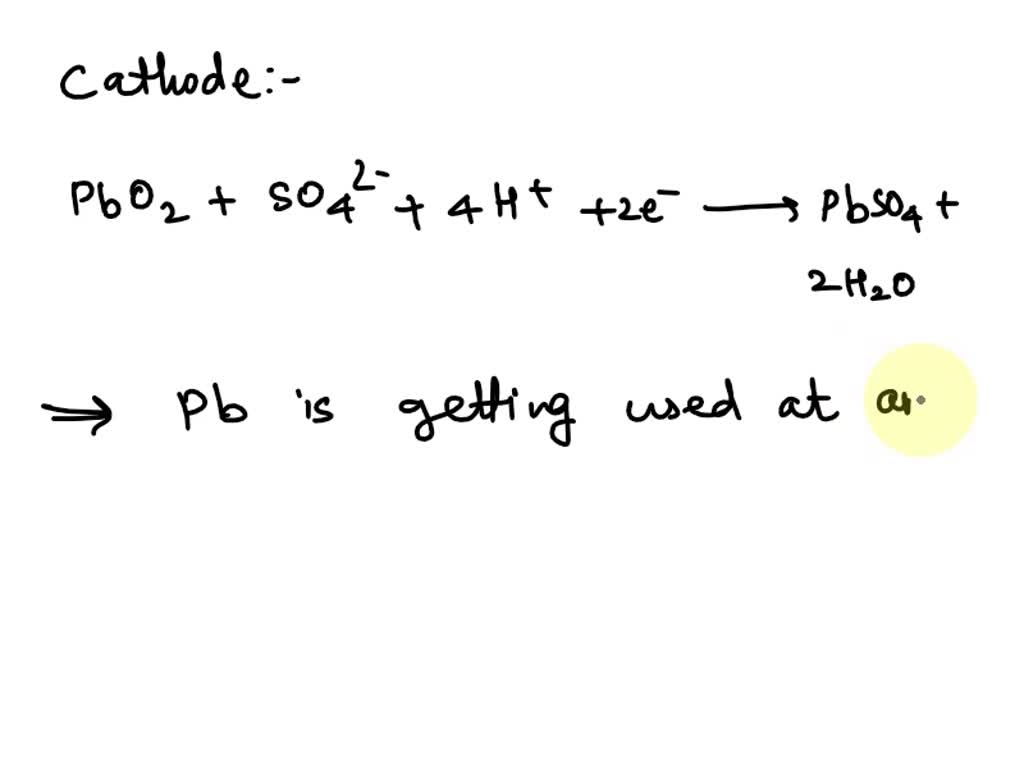 Cathode:-
PbO₂ + SO₄²⁻ + 4H⁺ + 2e⁻ ⟶ PbSO₄ +
2H₂O
⇒ Pb is getting used at an